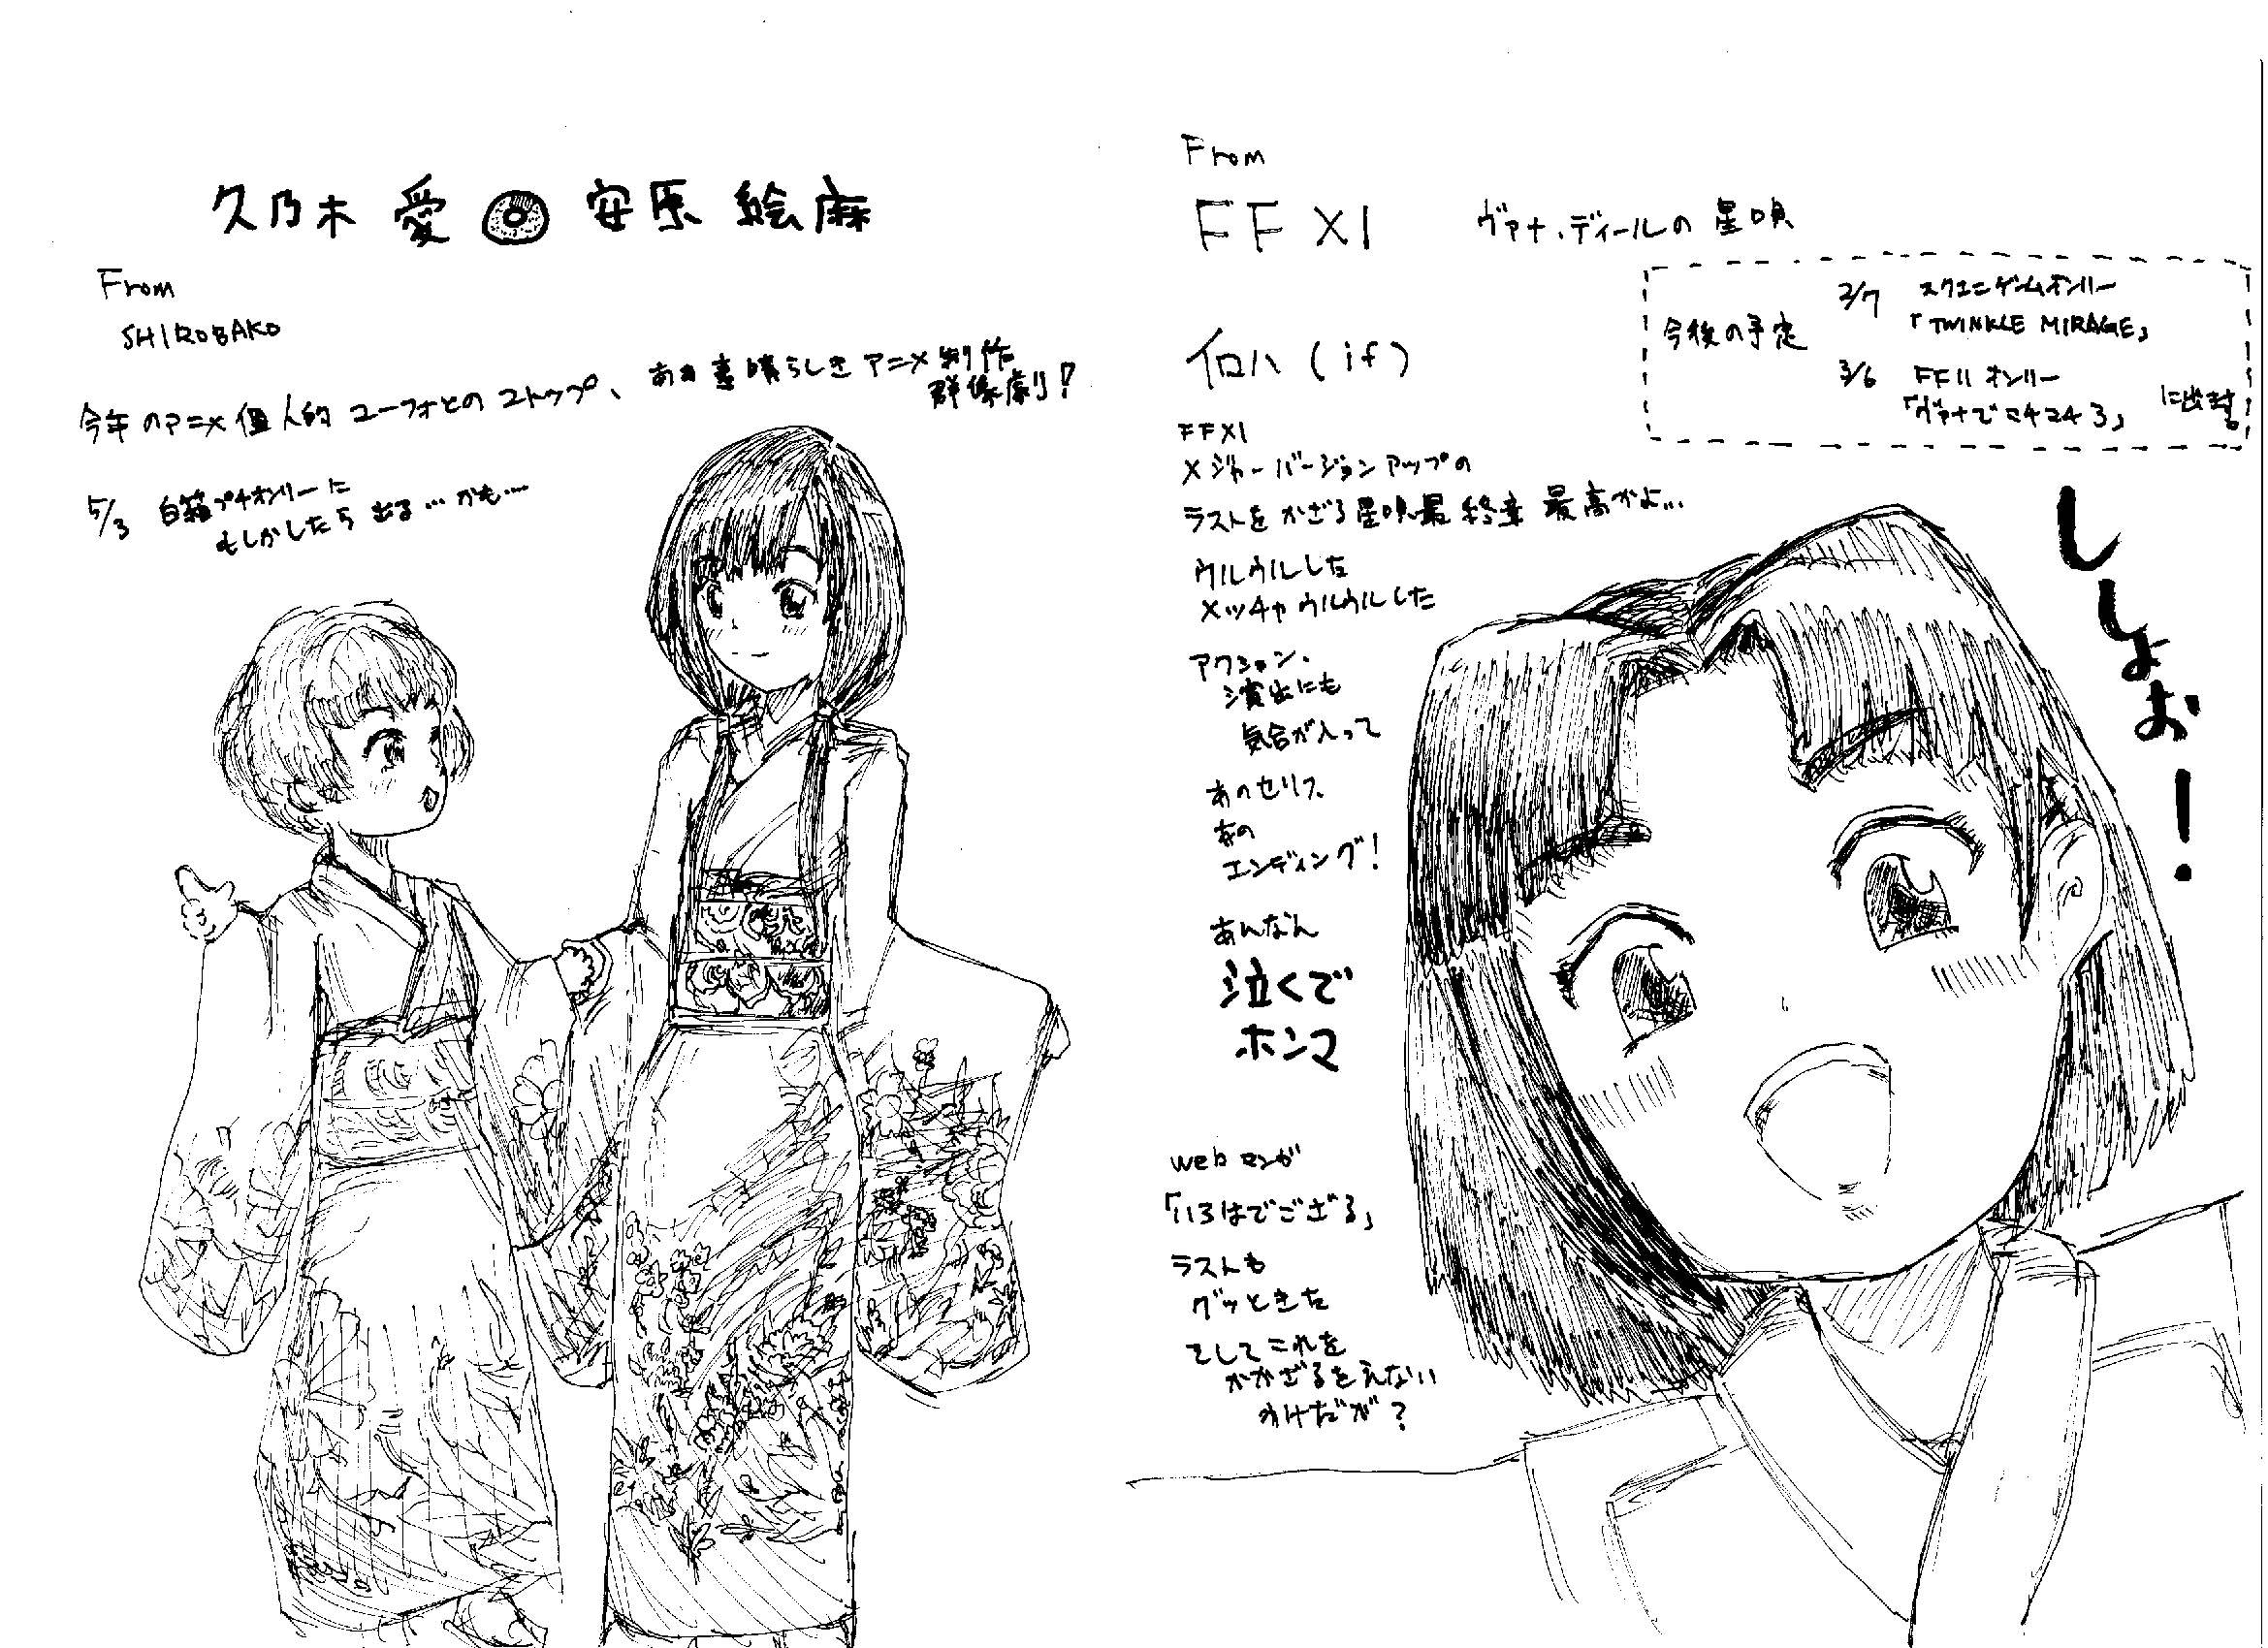 久乃木 愛 ◎ 安原 絵麻
From
SHIROBAKO
今年のアニメ個人的ユーフォとの2トップ、ああ素晴らしきアニメ制作
群像劇！
5/3 白箱プチオンリーに
もしかしたら 出る…かも…
From
FF XI ヴァナ・ディールの星唄
今後の予定
2/7 スクエニゲームオンリー
「TWINKLE MIRAGE」
3/6 FF11 オンリー
「ヴァナでコチコチ3」 に出ます。
イロハ (if)
FFXI
メジャーバージョンアップの
ラストをかざる星唄最終章 最高かよ…
ウルウルした
メッチャウルウルした
アクション、
演出にも
気合が入って
あのセリフ、
あの
エンディング！
あんなん
泣くで
ホンマ
webマンガ
「いろはでござる」
ラストも
グッときた
そしてこれを
かかざるをえない
わけだが？
ししょお！